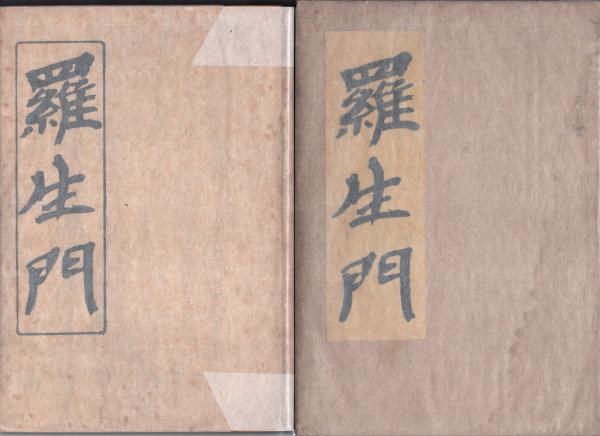 羅生門
羅生門